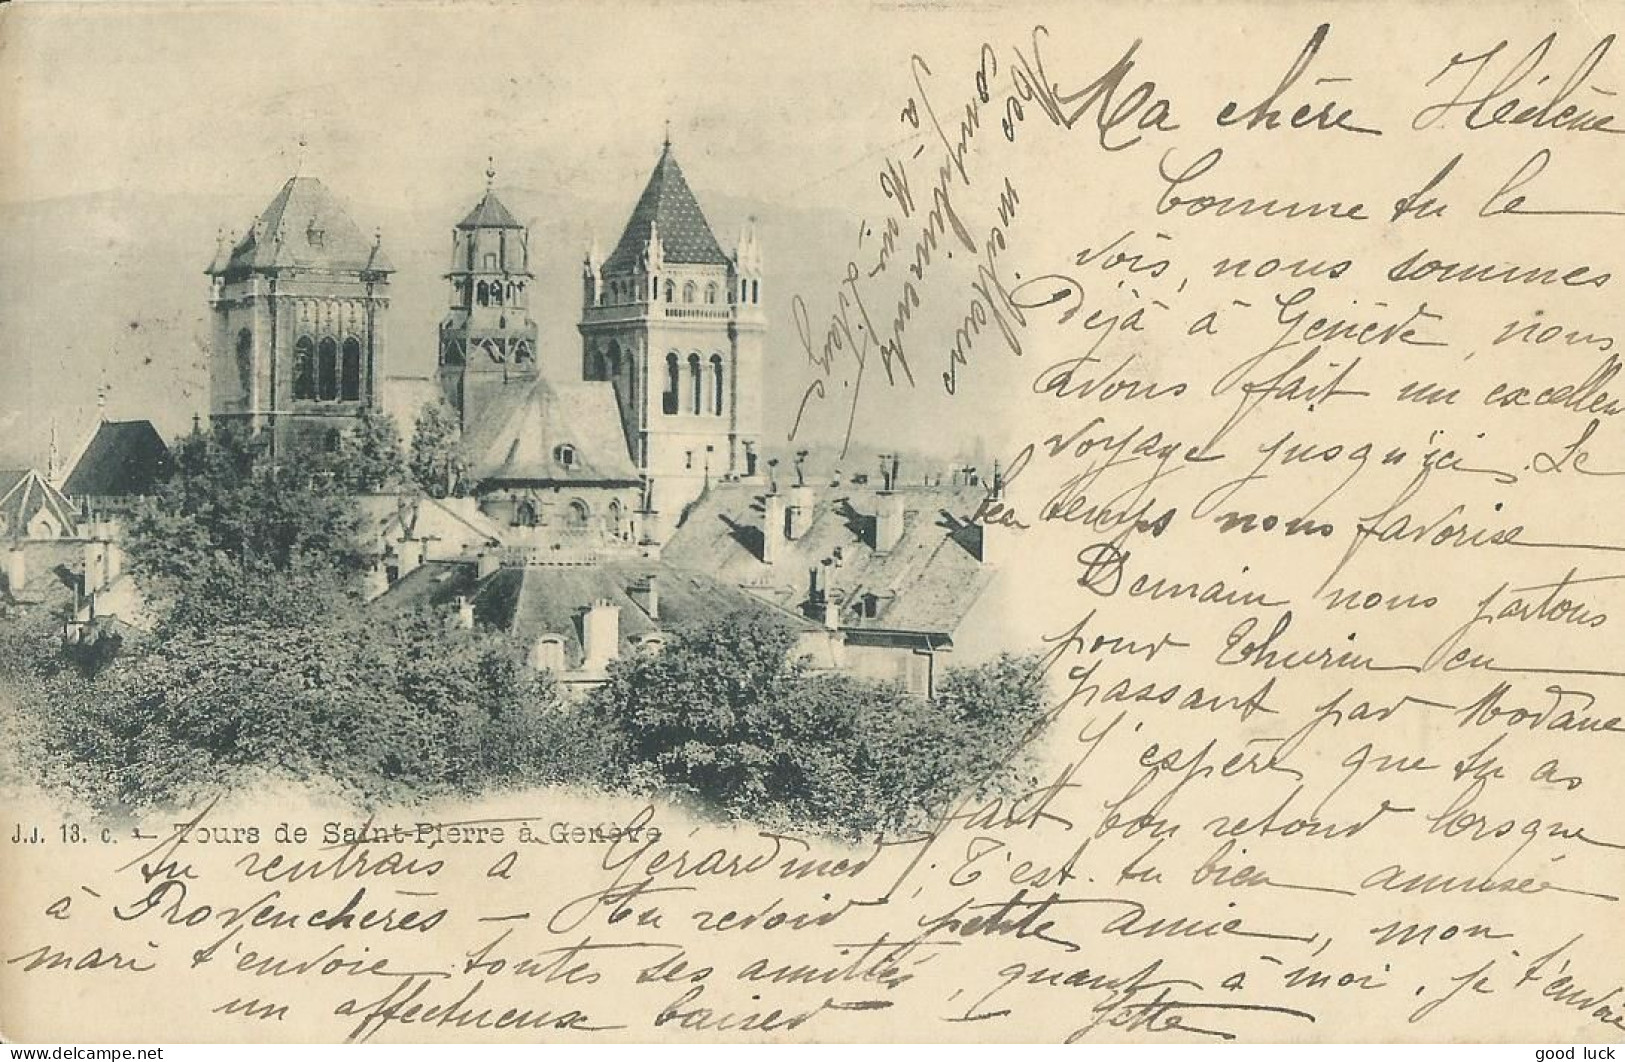 Ma chère Hélène
Comme tu le
vois, nous sommes
Déjà à Genève, nous
avons fait un excellen
voyage jusqu'ici. Le
beau temps nous favorise
Demain nous partons
pour Thurin en
passant par Modane
J'espère que tu as
fait bon retour lorsque
tu rentrais a Gérardmer ; T'est-tu bien amusée
à Provenchères — Au revoir petite amie, mon
mari t'envoie toutes ses amitiés, quant à moi, je t'envoie
un affectueux baiser
Mes meilleurs
compliments
a
J.J. 13. C. — Tours de Saint-Pierre à Genève
good luck